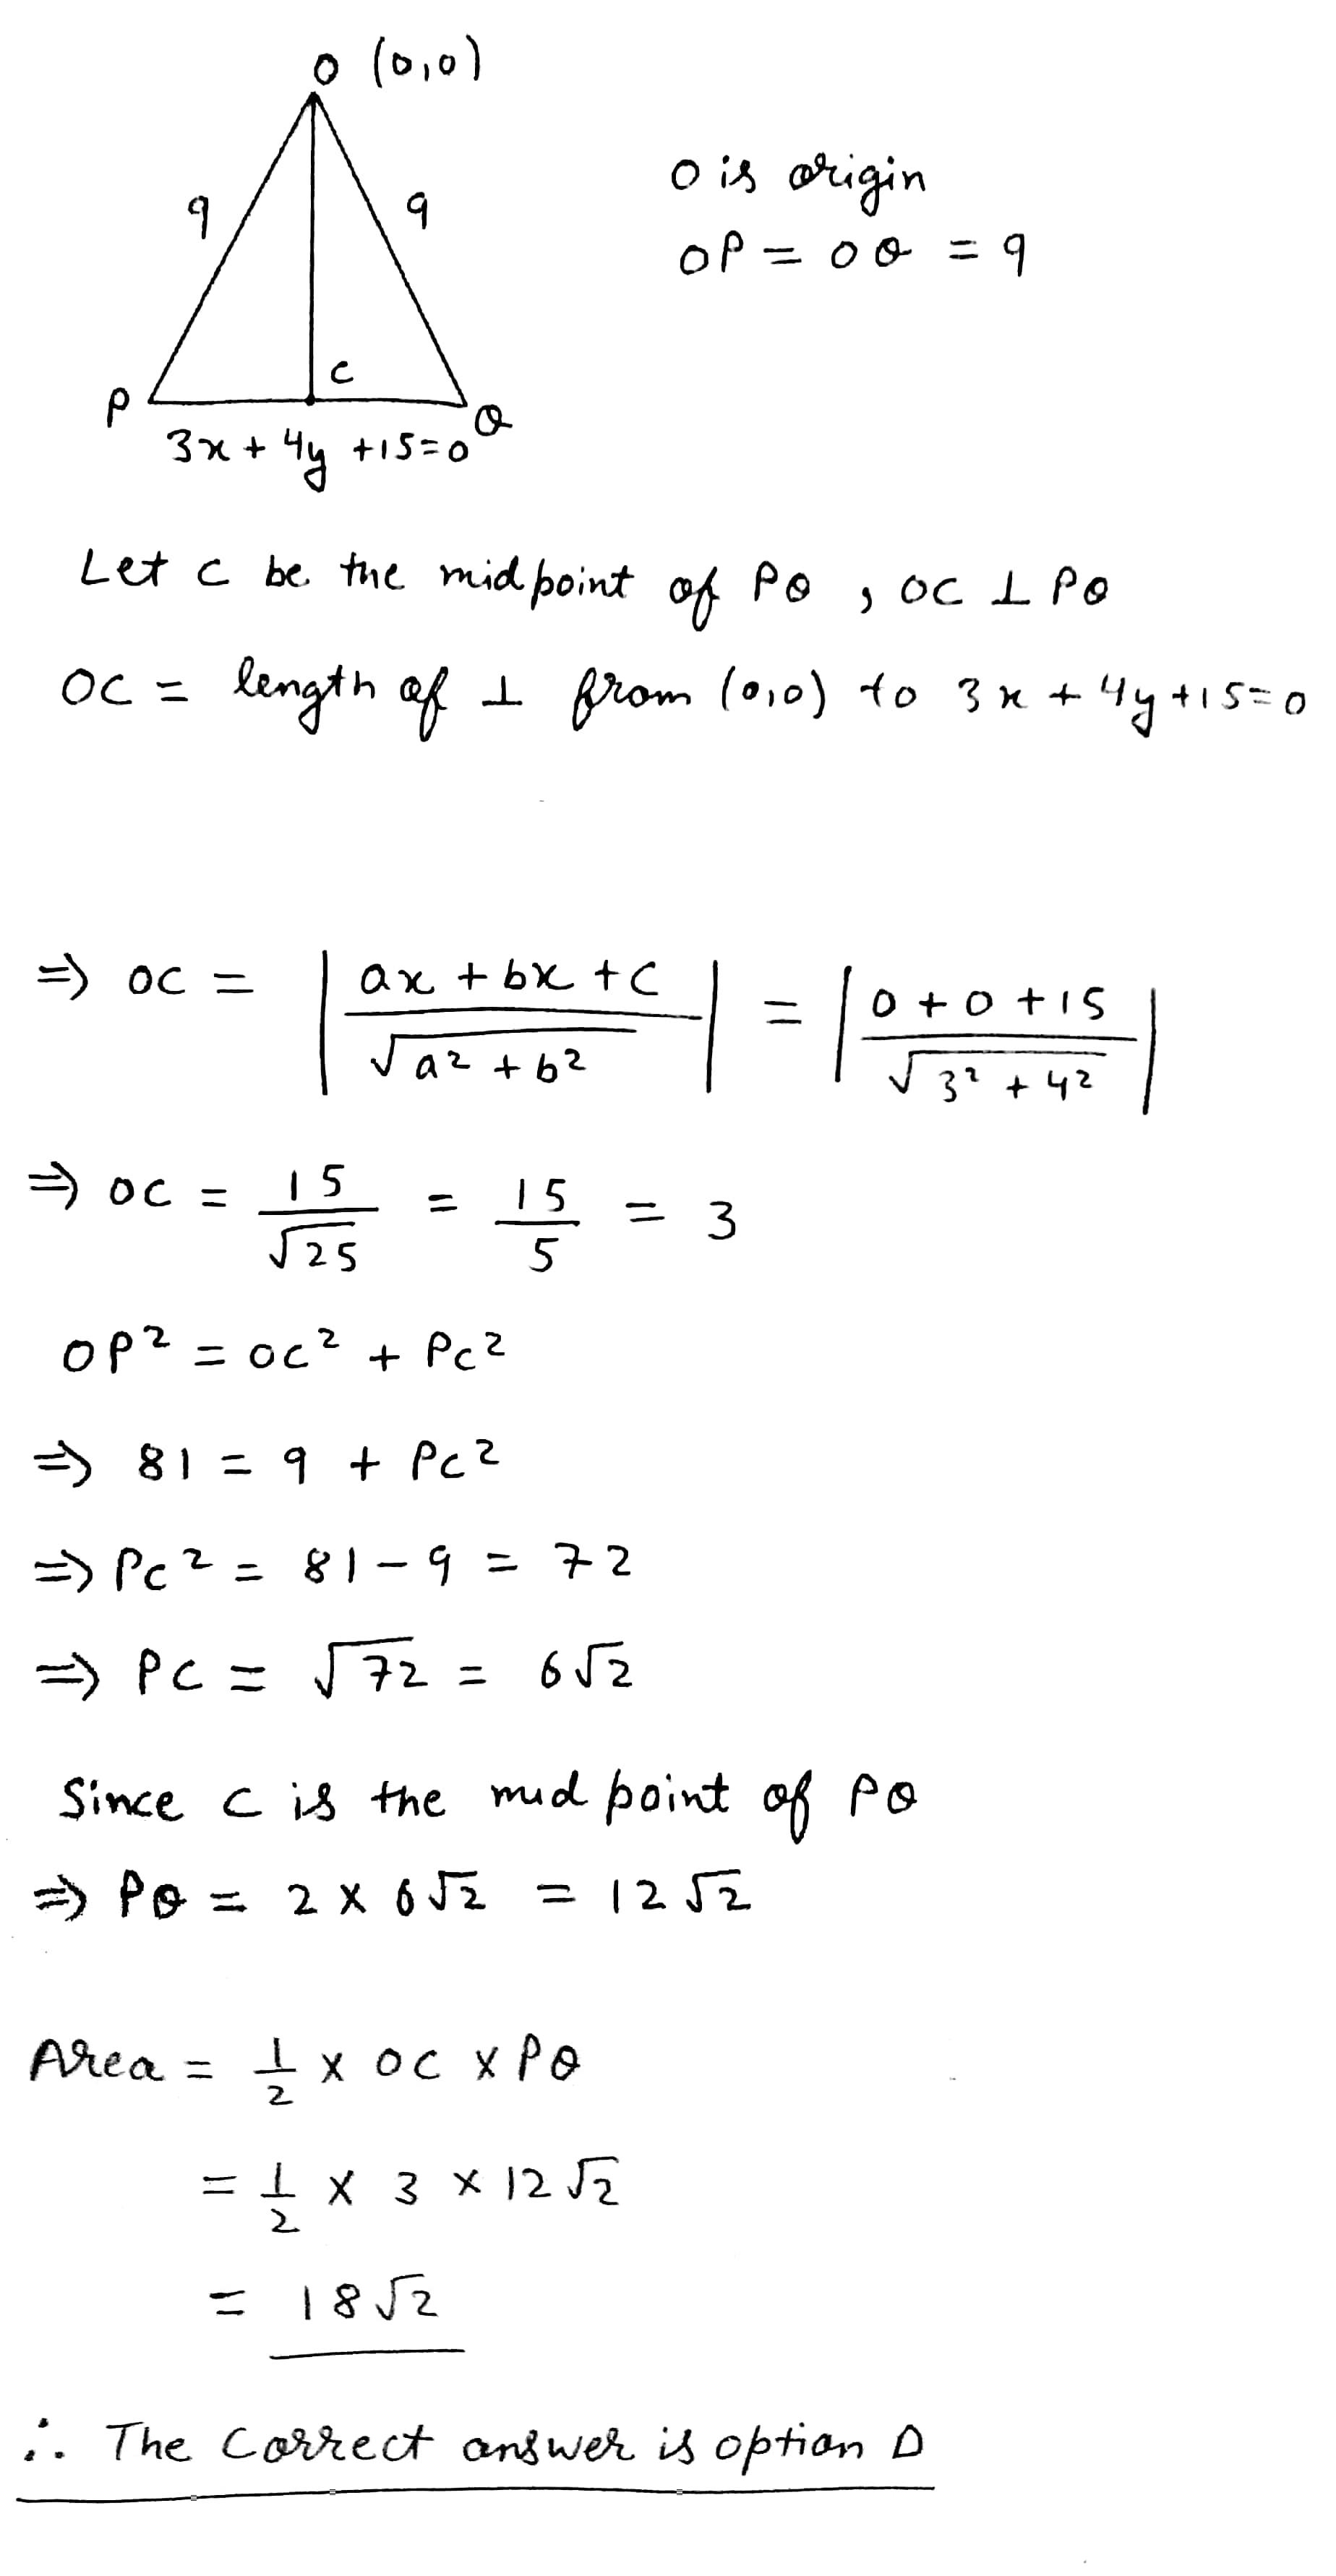 O (0,0)
9
9
O is origin
OP = OQ = 9
C
P
Q
3x + 4y + 15 = 0
Let C be the midpoint of PQ , OC ⊥ PQ
OC = length of ⊥ from (0,0) to 3x + 4y + 15 = 0
⇒ OC = | ax + bx + c / √a² + b² | = | 0 + 0 + 15 / √3² + 4² |
⇒ OC = 15/√25 = 15/5 = 3
OP² = OC² + PC²
⇒ 81 = 9 + PC²
⇒ PC² = 81 - 9 = 72
⇒ PC = √72 = 6√2
Since C is the mid point of PQ
⇒ PQ = 2 × 6√2 = 12√2
Area = 1/2 × OC × PQ
= 1/2 × 3 × 12√2
= 18√2
∴ The Correct answer is option D